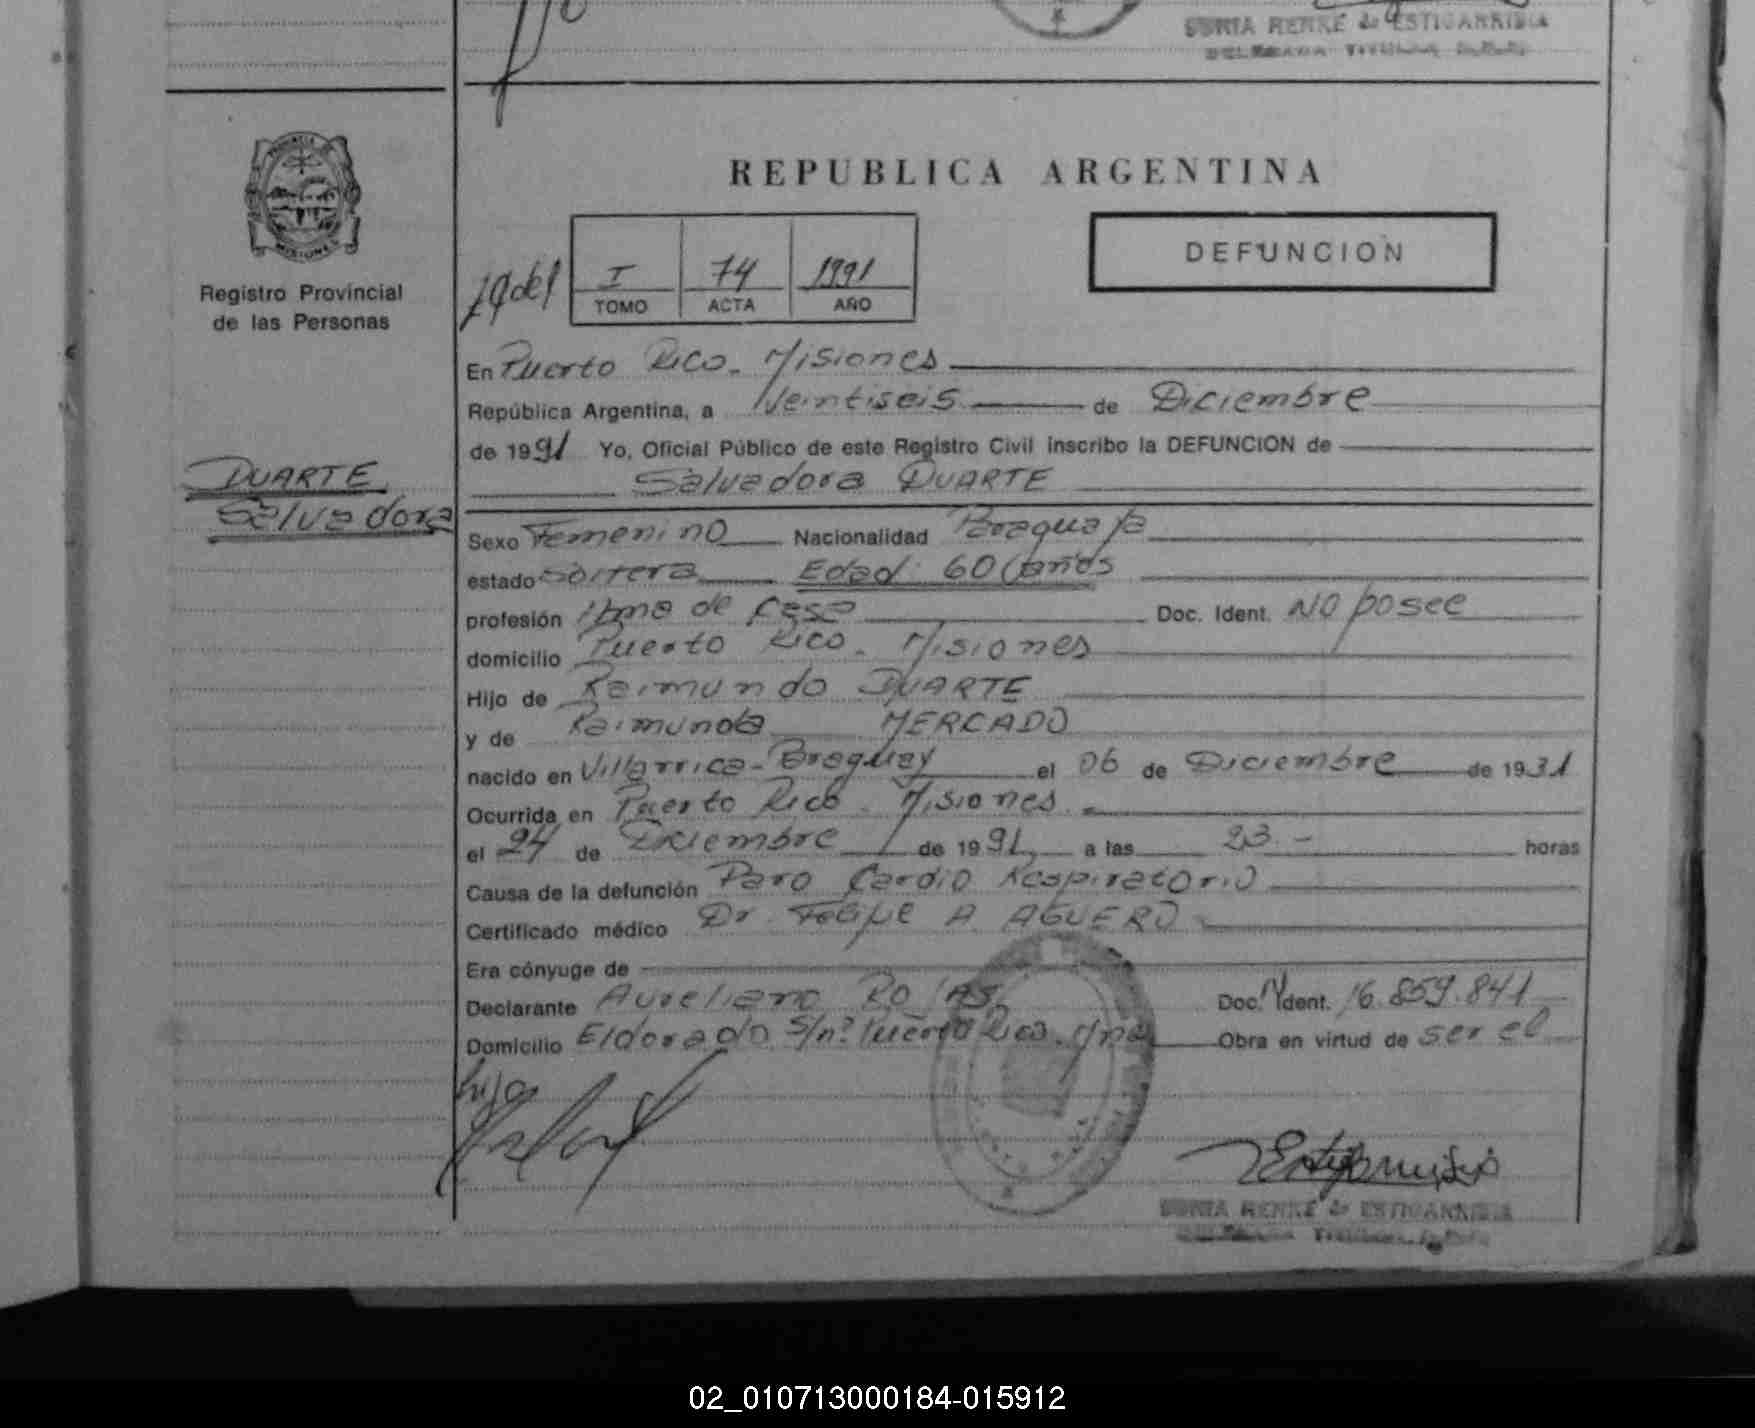 SONIA RENKE de ESTIGARRIBIA
DELEGADA TITULAR
REPUBLICA ARGENTINA
DEFUNCION
I 74 1991
TOMO ACTA AÑO
PROVINCIA
MISIONES
Registro Provincial
de las Personas
En Puerto Rico. Misiones
República Argentina, a Veintiseis de Diciembre
de 1991 Yo, Oficial Público de este Registro Civil inscribo la DEFUNCION de
Salvadora DUARTE
DUARTE
Salvadora
Sexo Femenino Nacionalidad Paraguaya
estado Soltera Edad: 60 (años
profesión Ama de Casa Doc. Ident. No posee
domicilio Puerto Rico. Misiones
Hijo de Raimundo DUARTE
y de Raimunda MERCADO
nacido en Villarrica-Paraguay el 06 de Diciembre de 1931
Ocurrida en Puerto Rico. Misiones.
el 24 de Diciembre de 1991, a las 23.- horas
Causa de la defunción Paro Cardio Respiratorio
Certificado médico Dr. Felipe A. AGUERO
Era cónyuge de
Declarante Aureliano ROJAS Doc. Ident. 16.859.841
Domicilio Eldorado S/nº Puerto Rico. Mnes Obra en virtud de ser el
hijo
SONIA RENKE de ESTIGARRIBIA
DELEGADA TITULAR
02_010713000184-015912